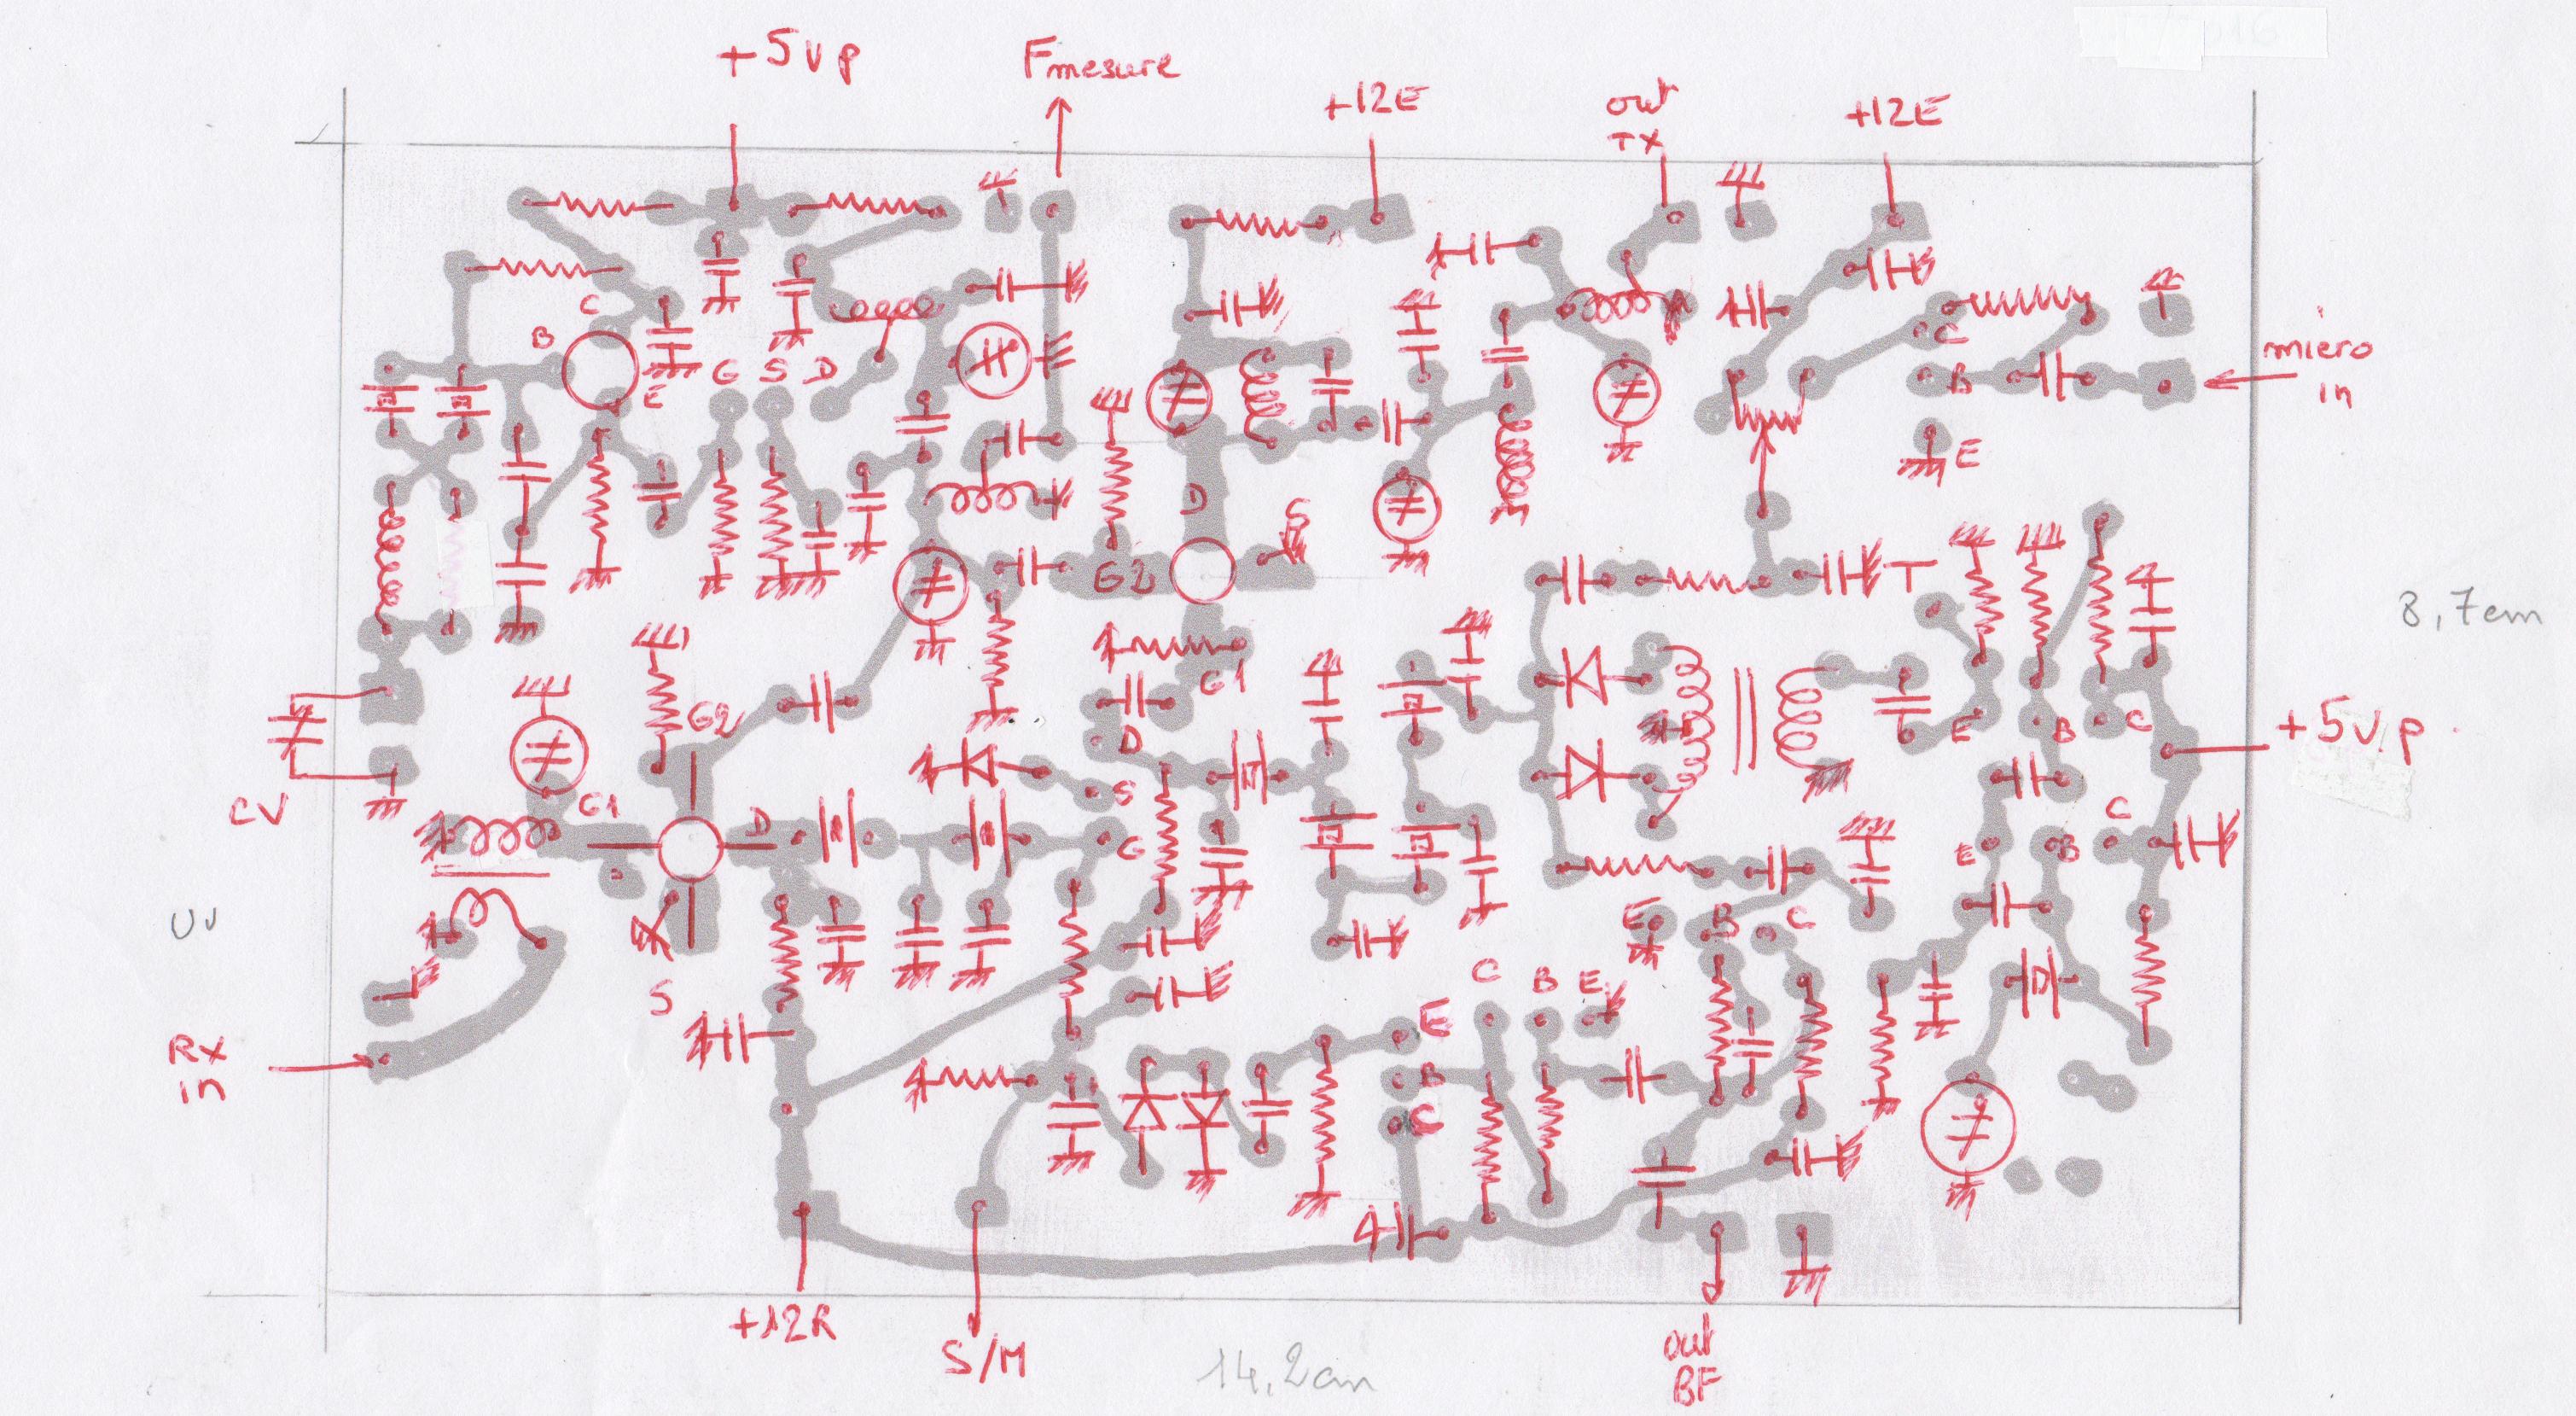 +5Vp
Fmesure
+12E
out
TX
+12E
C
B
E
G
S
D
C
B
E
micro
in
D
S
G2
T
8,7cm
G2
G1
E
B
C
+5V.p
D
S
G
CV
G1
D
E
B
C
E
B
C
S
C
B
E
E
B
C
RX
in
+12R
S/M
14,2cm
out
BF